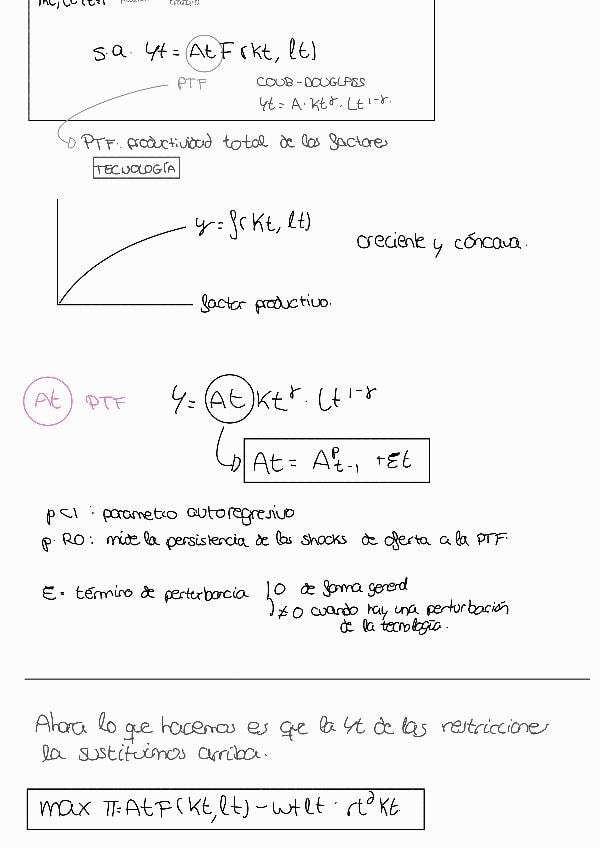 s.a. Yt = At F(Kt, lt)
PTF COUB-DOUGLASS
Yt = A · Kt^γ · Lt^1-γ
PTF: productividad total de los factores
TECNOLOGÍA
y = f(Kt, lt)
creciente y cóncava.
factor productivo.
At PTF Y = At Kt^γ · Lt^1-γ
At = A^ρ t-1 + Et
ρ<1 : parametro autoregresivo
ρ: RO: mide la persistencia de los shocks de oferta a la PTF.
E = término de perturbarcia 0 de forma gererd
≠ 0 cuando hay una perturbación
de la tecnología.
Ahora lo que hacemos es que la Yt de las restricciones
la sustituimos arriba.
max π = At F(Kt, lt) - wt lt · rt^d Kt